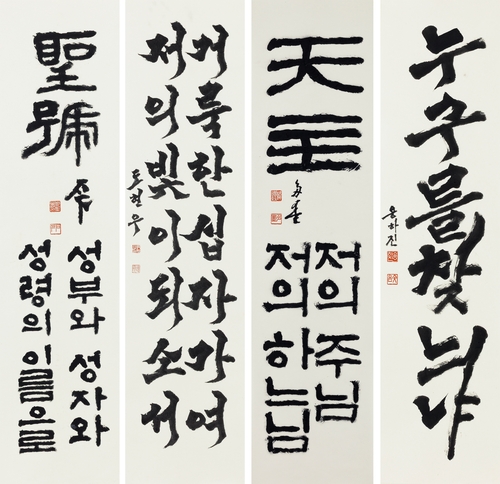 聖號
성부와 성자와
성령의 이름으로
거룩한 십자가여
저의 빛이 되소서
도현우
天主
저의 주님
저의 하느님
누구를 찾느냐
윤하진